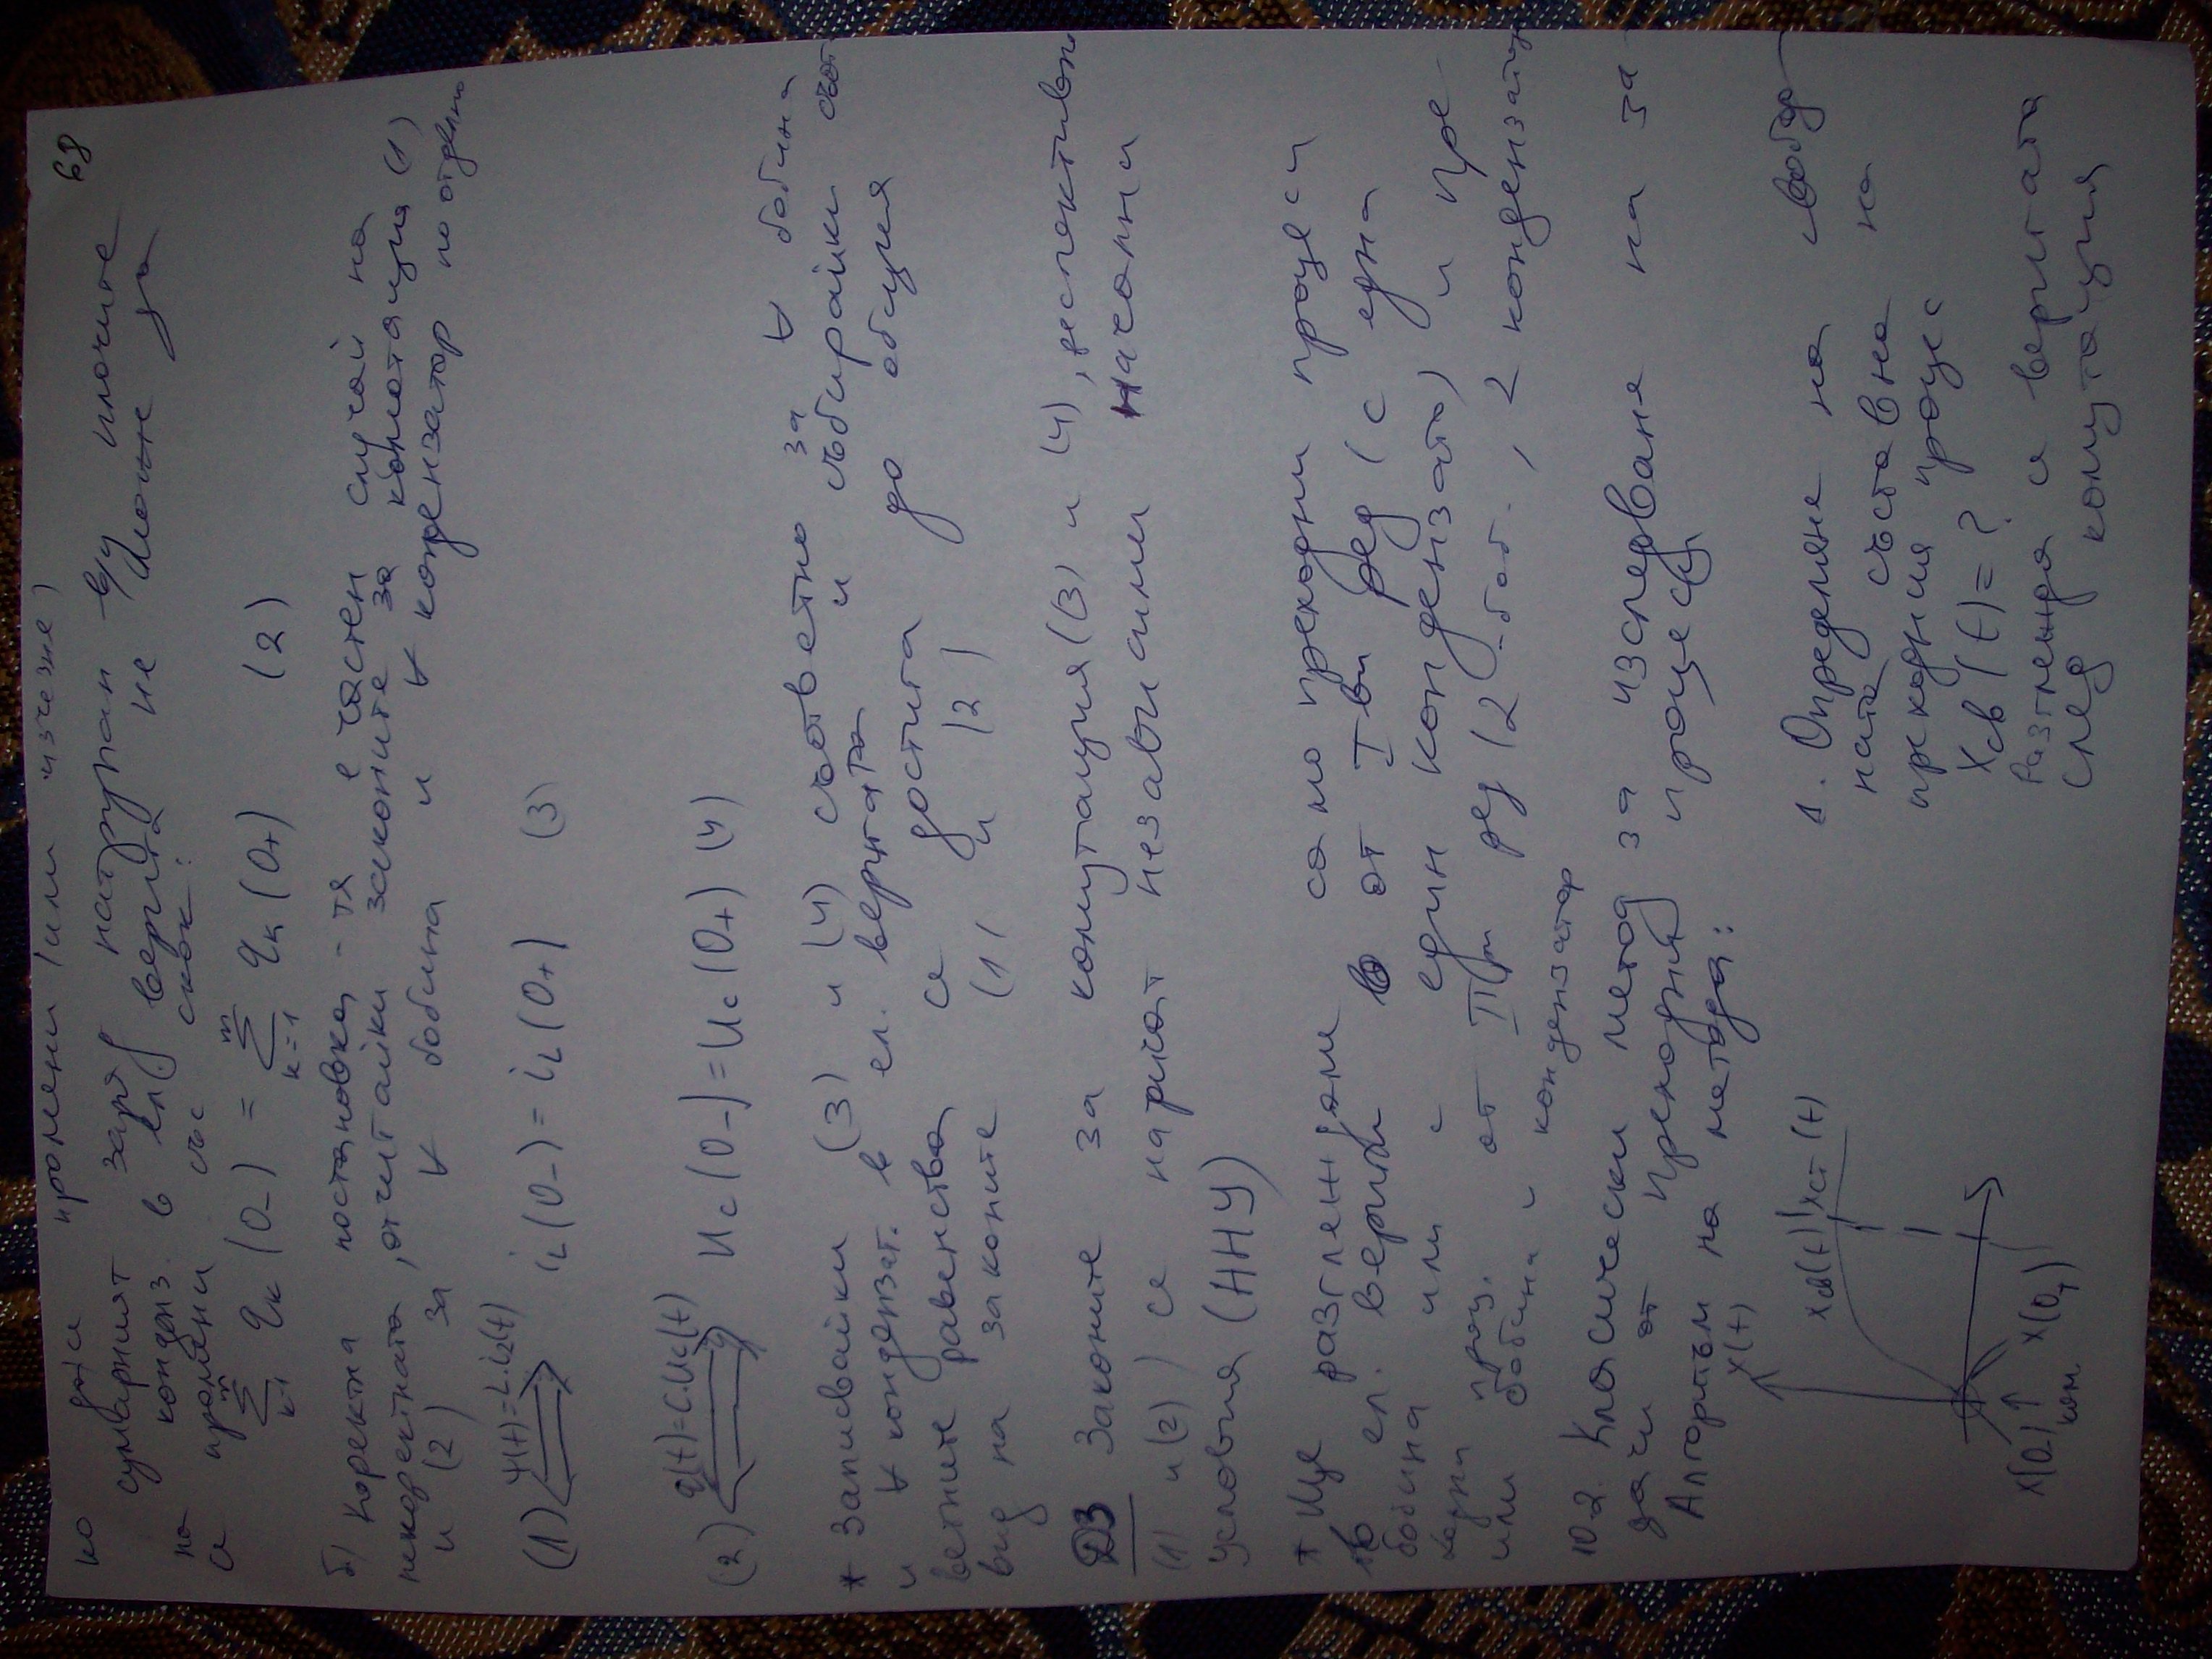 68
но да се промени (или изчезне)
сумарният заряд натрупан в/у плочите
на конденз. в ел. верига не може да
се промени със скок:
m Σ k=1 qk (0-) = m Σ k=1 qk (0+) (2)
б) Коректна постановка - тя е частен случай на
некоректната, отчитайки законите за комутация (1)
и (2) за ∀ бобина и ∀ кондензатор по отделно
(1) Ψ(t)=L.iL(t) iL(0-) = iL(0+) (3)
(2) q(t)=C.Uc(t) Uc(0-) = Uc(0+) (4)
* Записвайки (3) и (4) съответно за ∀ бобина
и ∀ кондензат. в ел. веригата и събирайки съот
ветните равенства се достига до общия
вид на законите (1) и (2)
ДЗ Законите за комутация (3) и (4), респективно
(1) и (2) се наричат независими начални
условия (ННУ)
* Ще разглеждаме само преходни процеси
в ел. вериги от I-ви ред (с една
бобина или с един кондензатор) и пре-
ходни проц. от II-ри ред (2 боб., 2 кондензатора
или бобина и кондензатор
10.2. Класически метод за изследване на за
дачи от преходни процеси
Алгоритъм на метода:
x(t)
xсв(t) xст(t)
x(0-) x(0+)
1. Определяне на свобод-
ната съставна на
преходния процес
Xсв(t)=?
Разглежда се веригата
след комутация